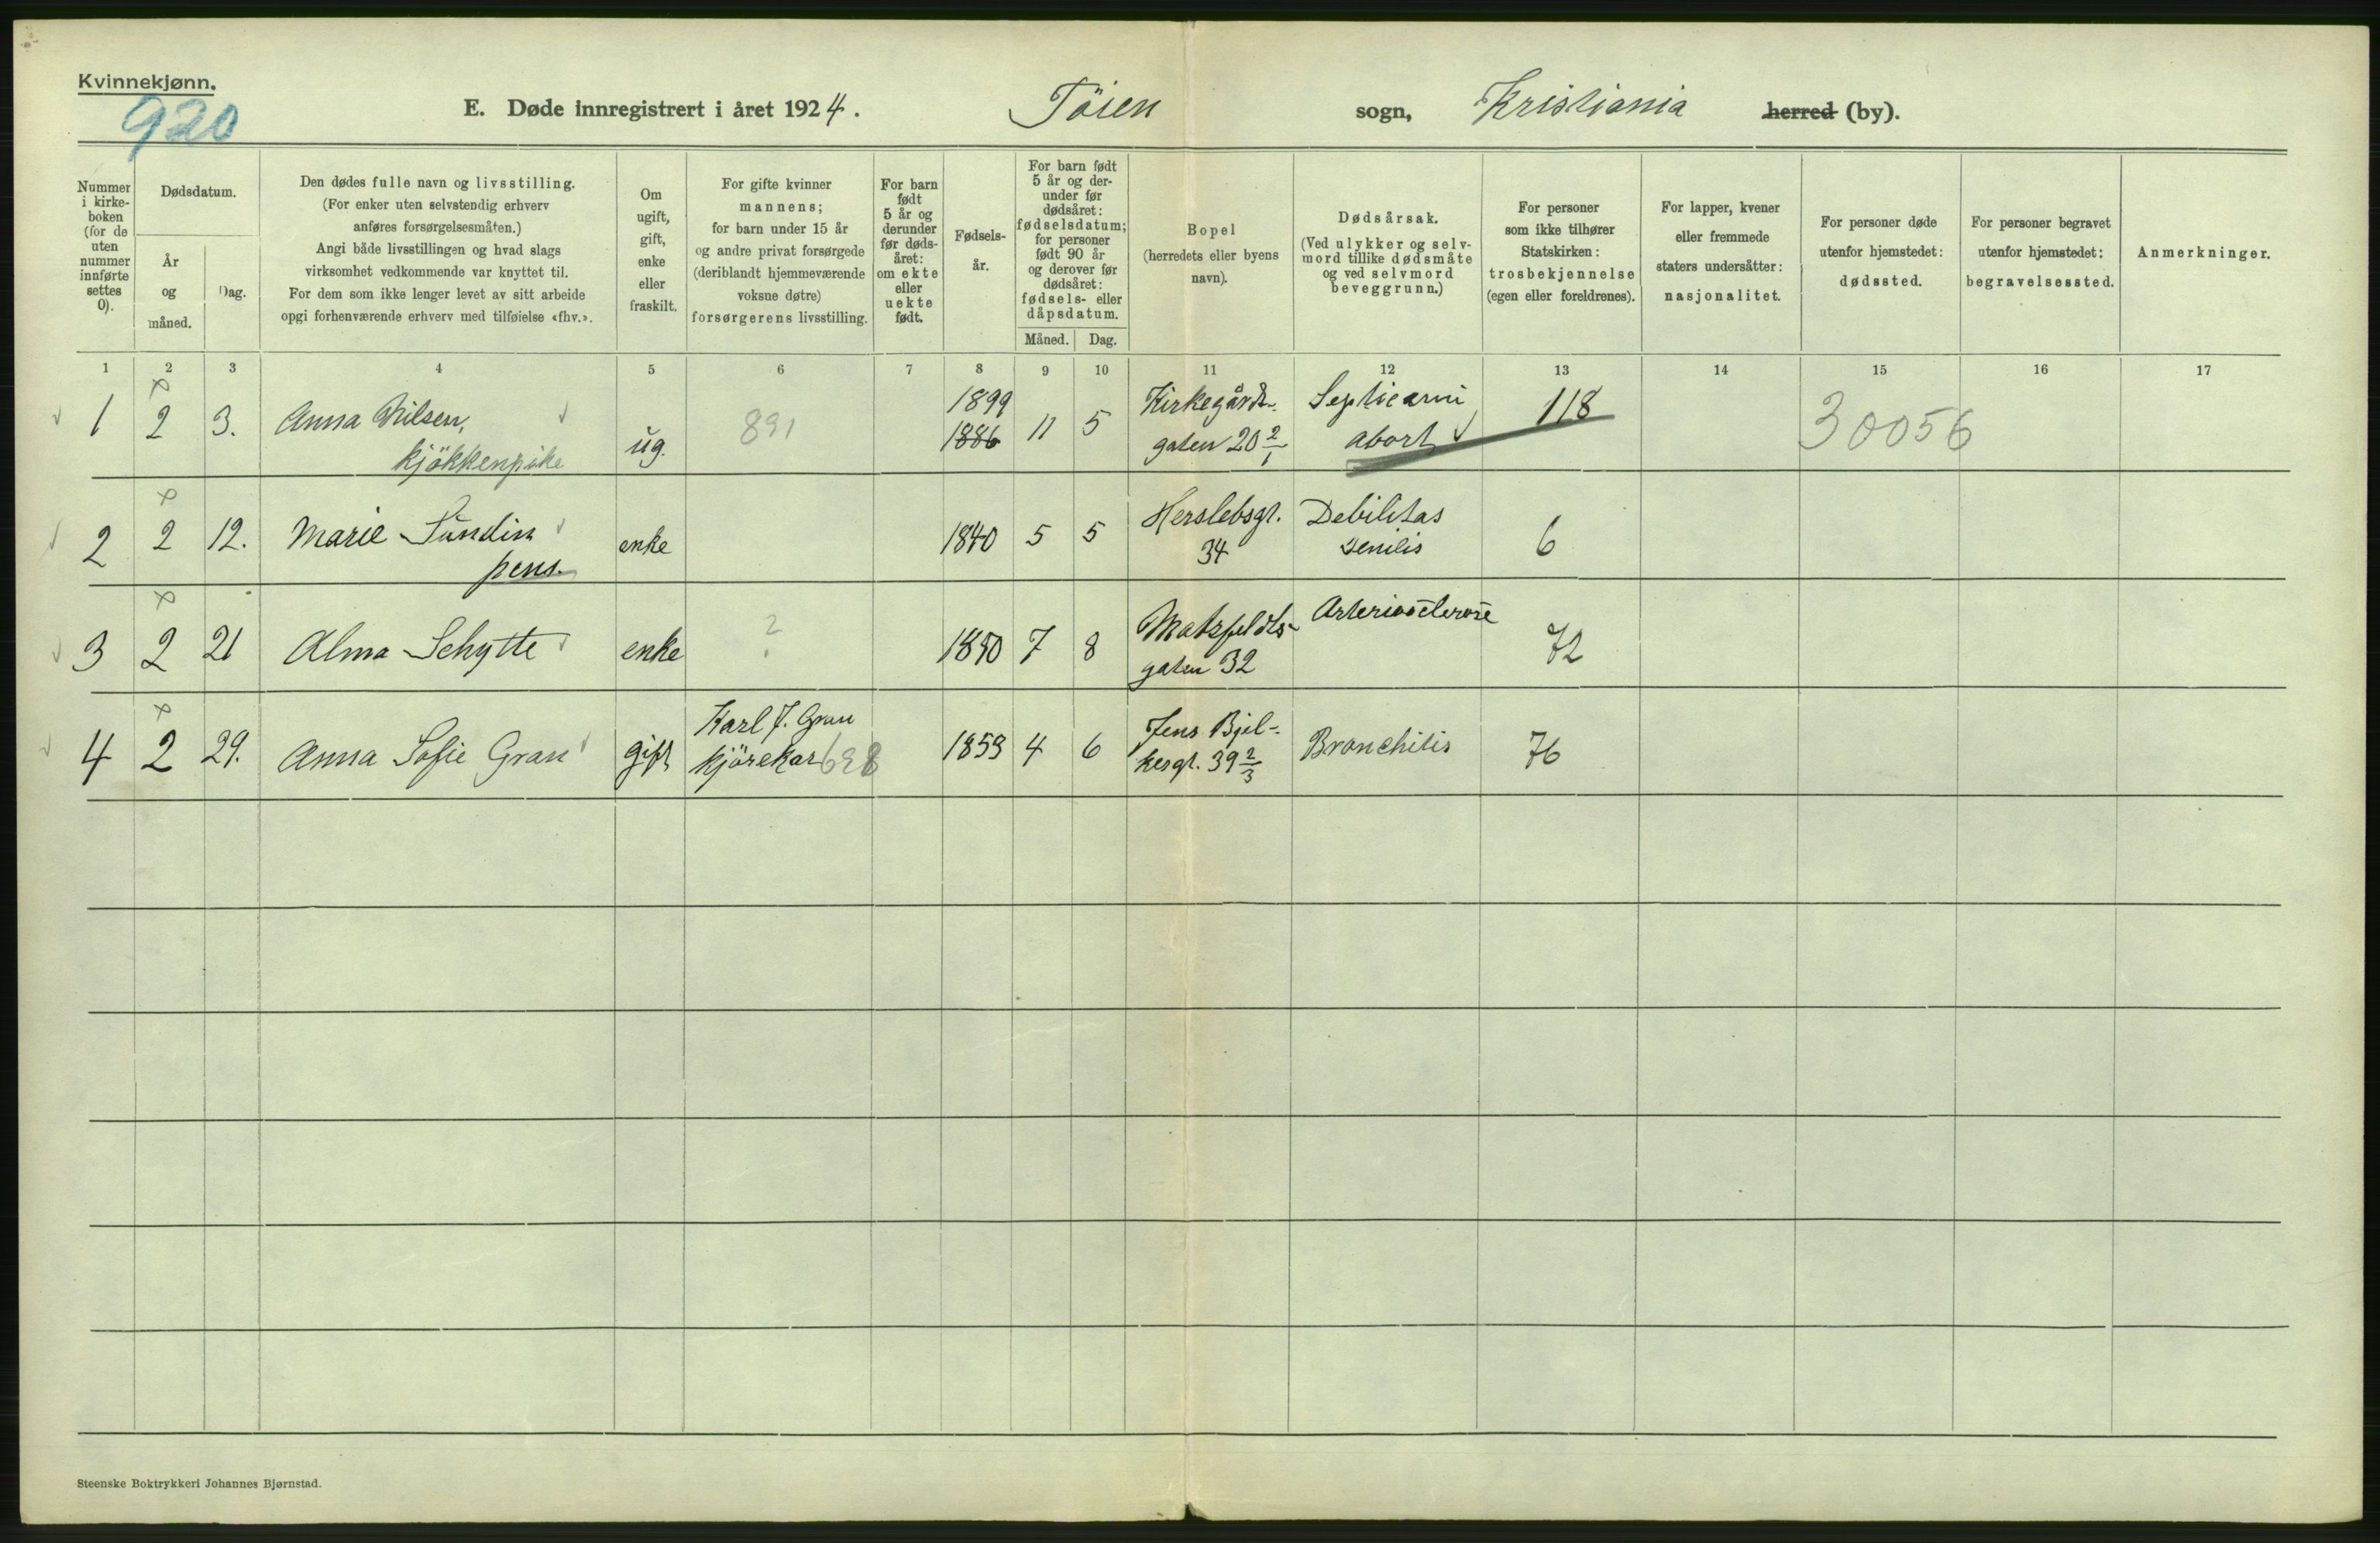 Kvinnekjønn.
920
E. Døde innregistrert i året 1924.
Töien sogn, Kristiania herred (by).
Nummer i kirkeboken (for de uten nummer innførte settes 0).
Dødsdatum.
År og måned.
Dag.
Den dødes fulle navn og livsstilling.
(For enker uten selvstendig erhverv
anføres forsørgelsesmåten.)
Angi både livsstillingen og hvad slags
virksomhet vedkommende var knyttet til.
For dem som ikke lenger levet av sitt arbeide
opgi forhenværende erhverv med tilføielse «fhv.».
Om
ugift,
gift,
enke
eller
fraskilt.
For gifte kvinner
mannens;
for barn under 15 år
og andre privat forsørgede
(deriblandt hjemmeværende
voksne døtre)
forsørgerens livsstilling.
For barn
født
5 år og
derunder
før døds-
året:
om ekte
eller
uekte
født.
Fødsels-
år.
For barn født
5 år og der-
under før
dødsåret:
fødselsdatum;
for personer
født 90 år
og derover før
dødsåret:
fødsels- eller
dåpsdatum.
Måned. Dag.
Bopel
(herredets eller byens
navn).
Dødsårsak.
(Ved ulykker og selv-
mord tillike dødsmåte
og ved selvmord
beveggrunn.)
For personer
som ikke tilhører
Statskirken:
trosbekjennelse
(egen eller foreldrenes).
For lapper, kvener
eller fremmede
staters undersåtter:
nasjonalitet.
For personer døde
utenfor hjemstedet:
dødssted.
For personer begravet
utenfor hjemstedet:
begravelsessted.
Anmerkninger.
1 2 3 4 5 6 7 8 9 10 11 12 13 14 15 16 17
1 2 3. Anna Nilsen,
kjökkenpike
ug. 891
1899
1886
11 5
Kirkegårds-
gaten 20 2/1
Septicæmi
abort
118
30056
2 2 12. Marie Sundin
pens.
enke 1840 5 5
Herslebsgt.
34
Debilitas
senilis
6
3 2 21 Alma Schytte enke ? 1850 7 8
Motzfeldts-
gaten 32
Arteriosclerose
72
4 2 29. Anna Sofie Gran gift
Karl J. Gran
kjörekar 698
1853 4 6
Jens Bjel-
kesgt. 39 2/3
Bronchitis
76
Steenske Boktrykkeri Johannes Bjørnstad.